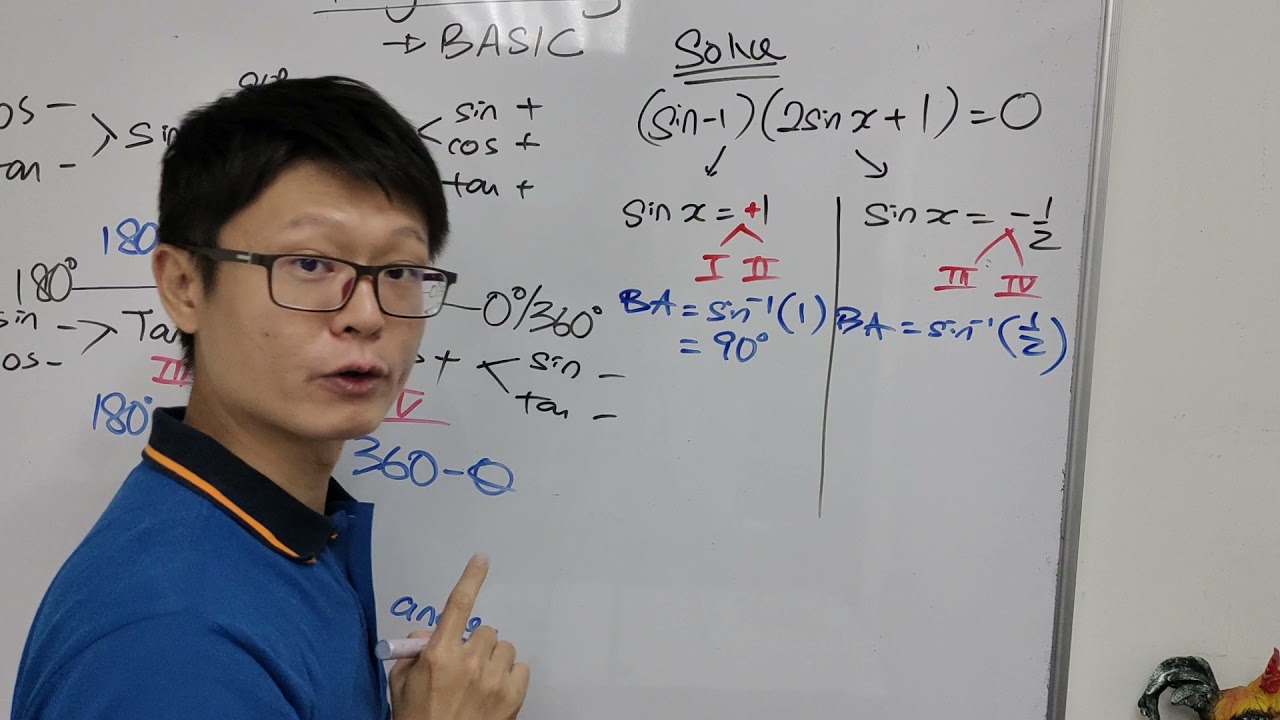 → BASIC
cos −
tan −
sin +
cos +
tan +
180°
180°
0°/360°
sin −
cos −
Tan
III
+
sin −
tan −
180°
IV
360 − θ
Solve
(sin−1)(2sin x + 1) = 0
sin x = +1
I II
BA = sin⁻¹(1)
= 90°
sin x = −1/2
III IV
BA = sin⁻¹(1/2)